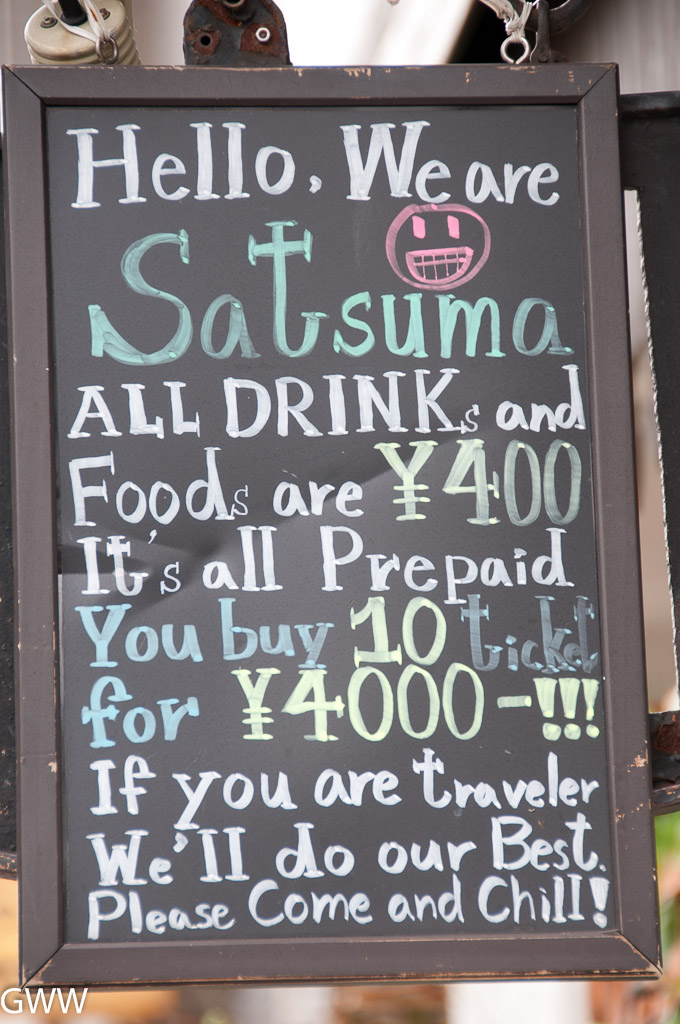 Hello, We are
Satsuma
ALL DRINKs and
Foods are ¥400
It's all Prepaid
You buy 10 ticket
for ¥4000-!!!
If you are traveler
We'll do our Best.
Please Come and Chill!
GWW